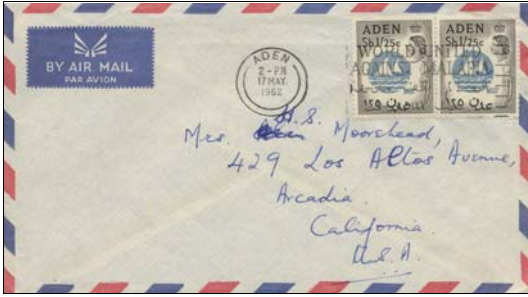 BY AIR MAIL
PAR AVION
ADEN
2-PM
17 MAY.
1962
ADEN
Sh1/25c
ADEN
Sh1/25c
WORLD UNITED
AGAINST MALARIA
١٢٥
عدن ١٢٥
Mrs. H.S. Moorshead,
429 Los Altos Avenue,
Arcadia.
California.
U.S.A.